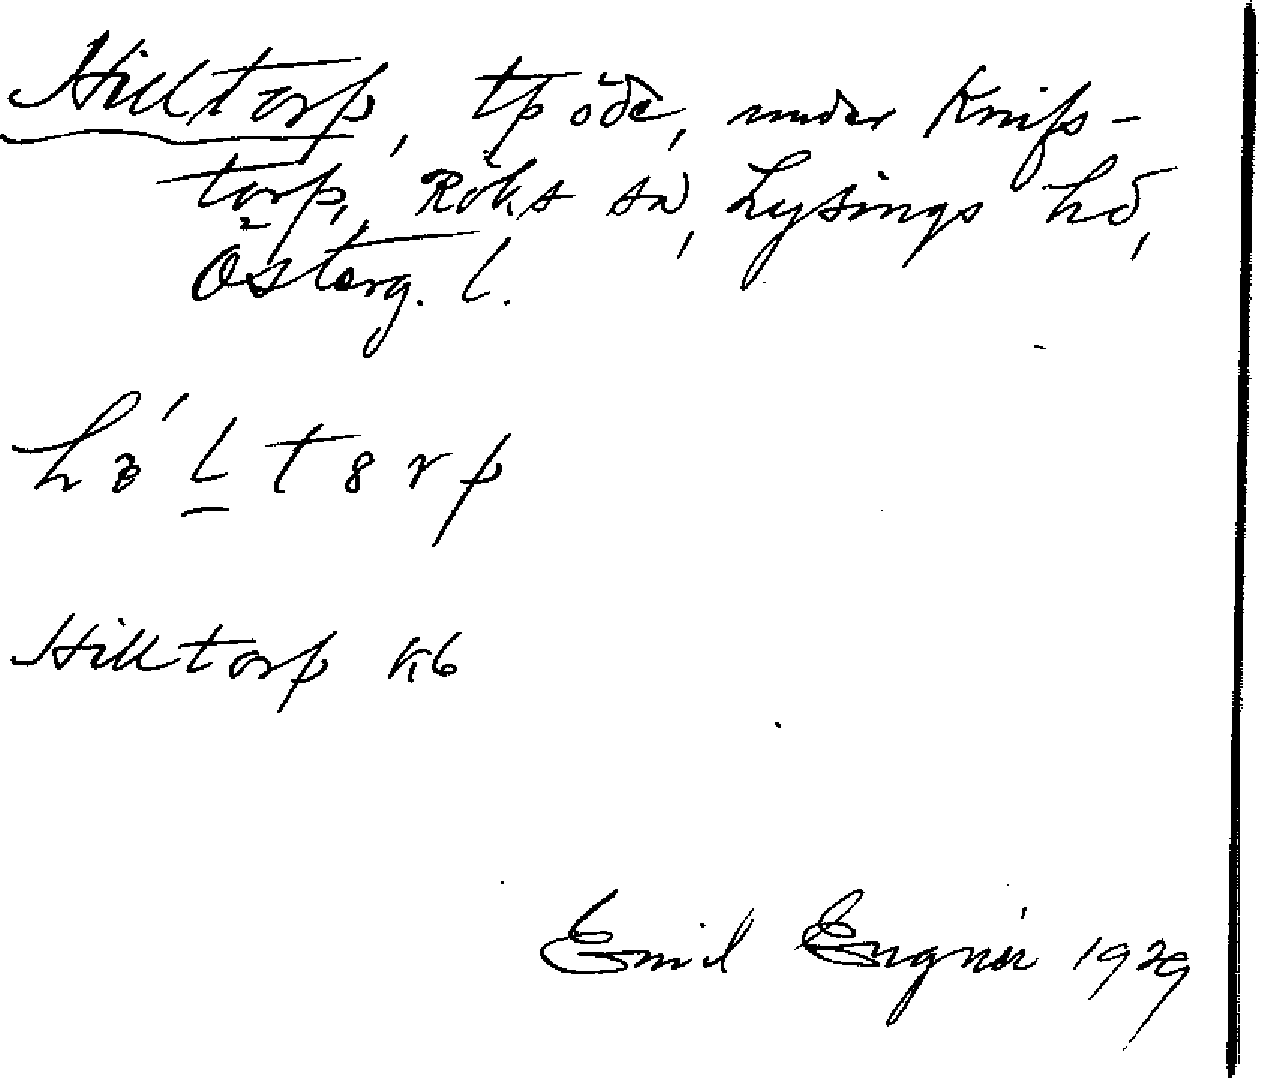 Hilltorp, tp öde, under Knifs-
torp, Röks sn, Lysings hd,
Österg. l.
Hilltorp Kb
Emil Engnér 1929